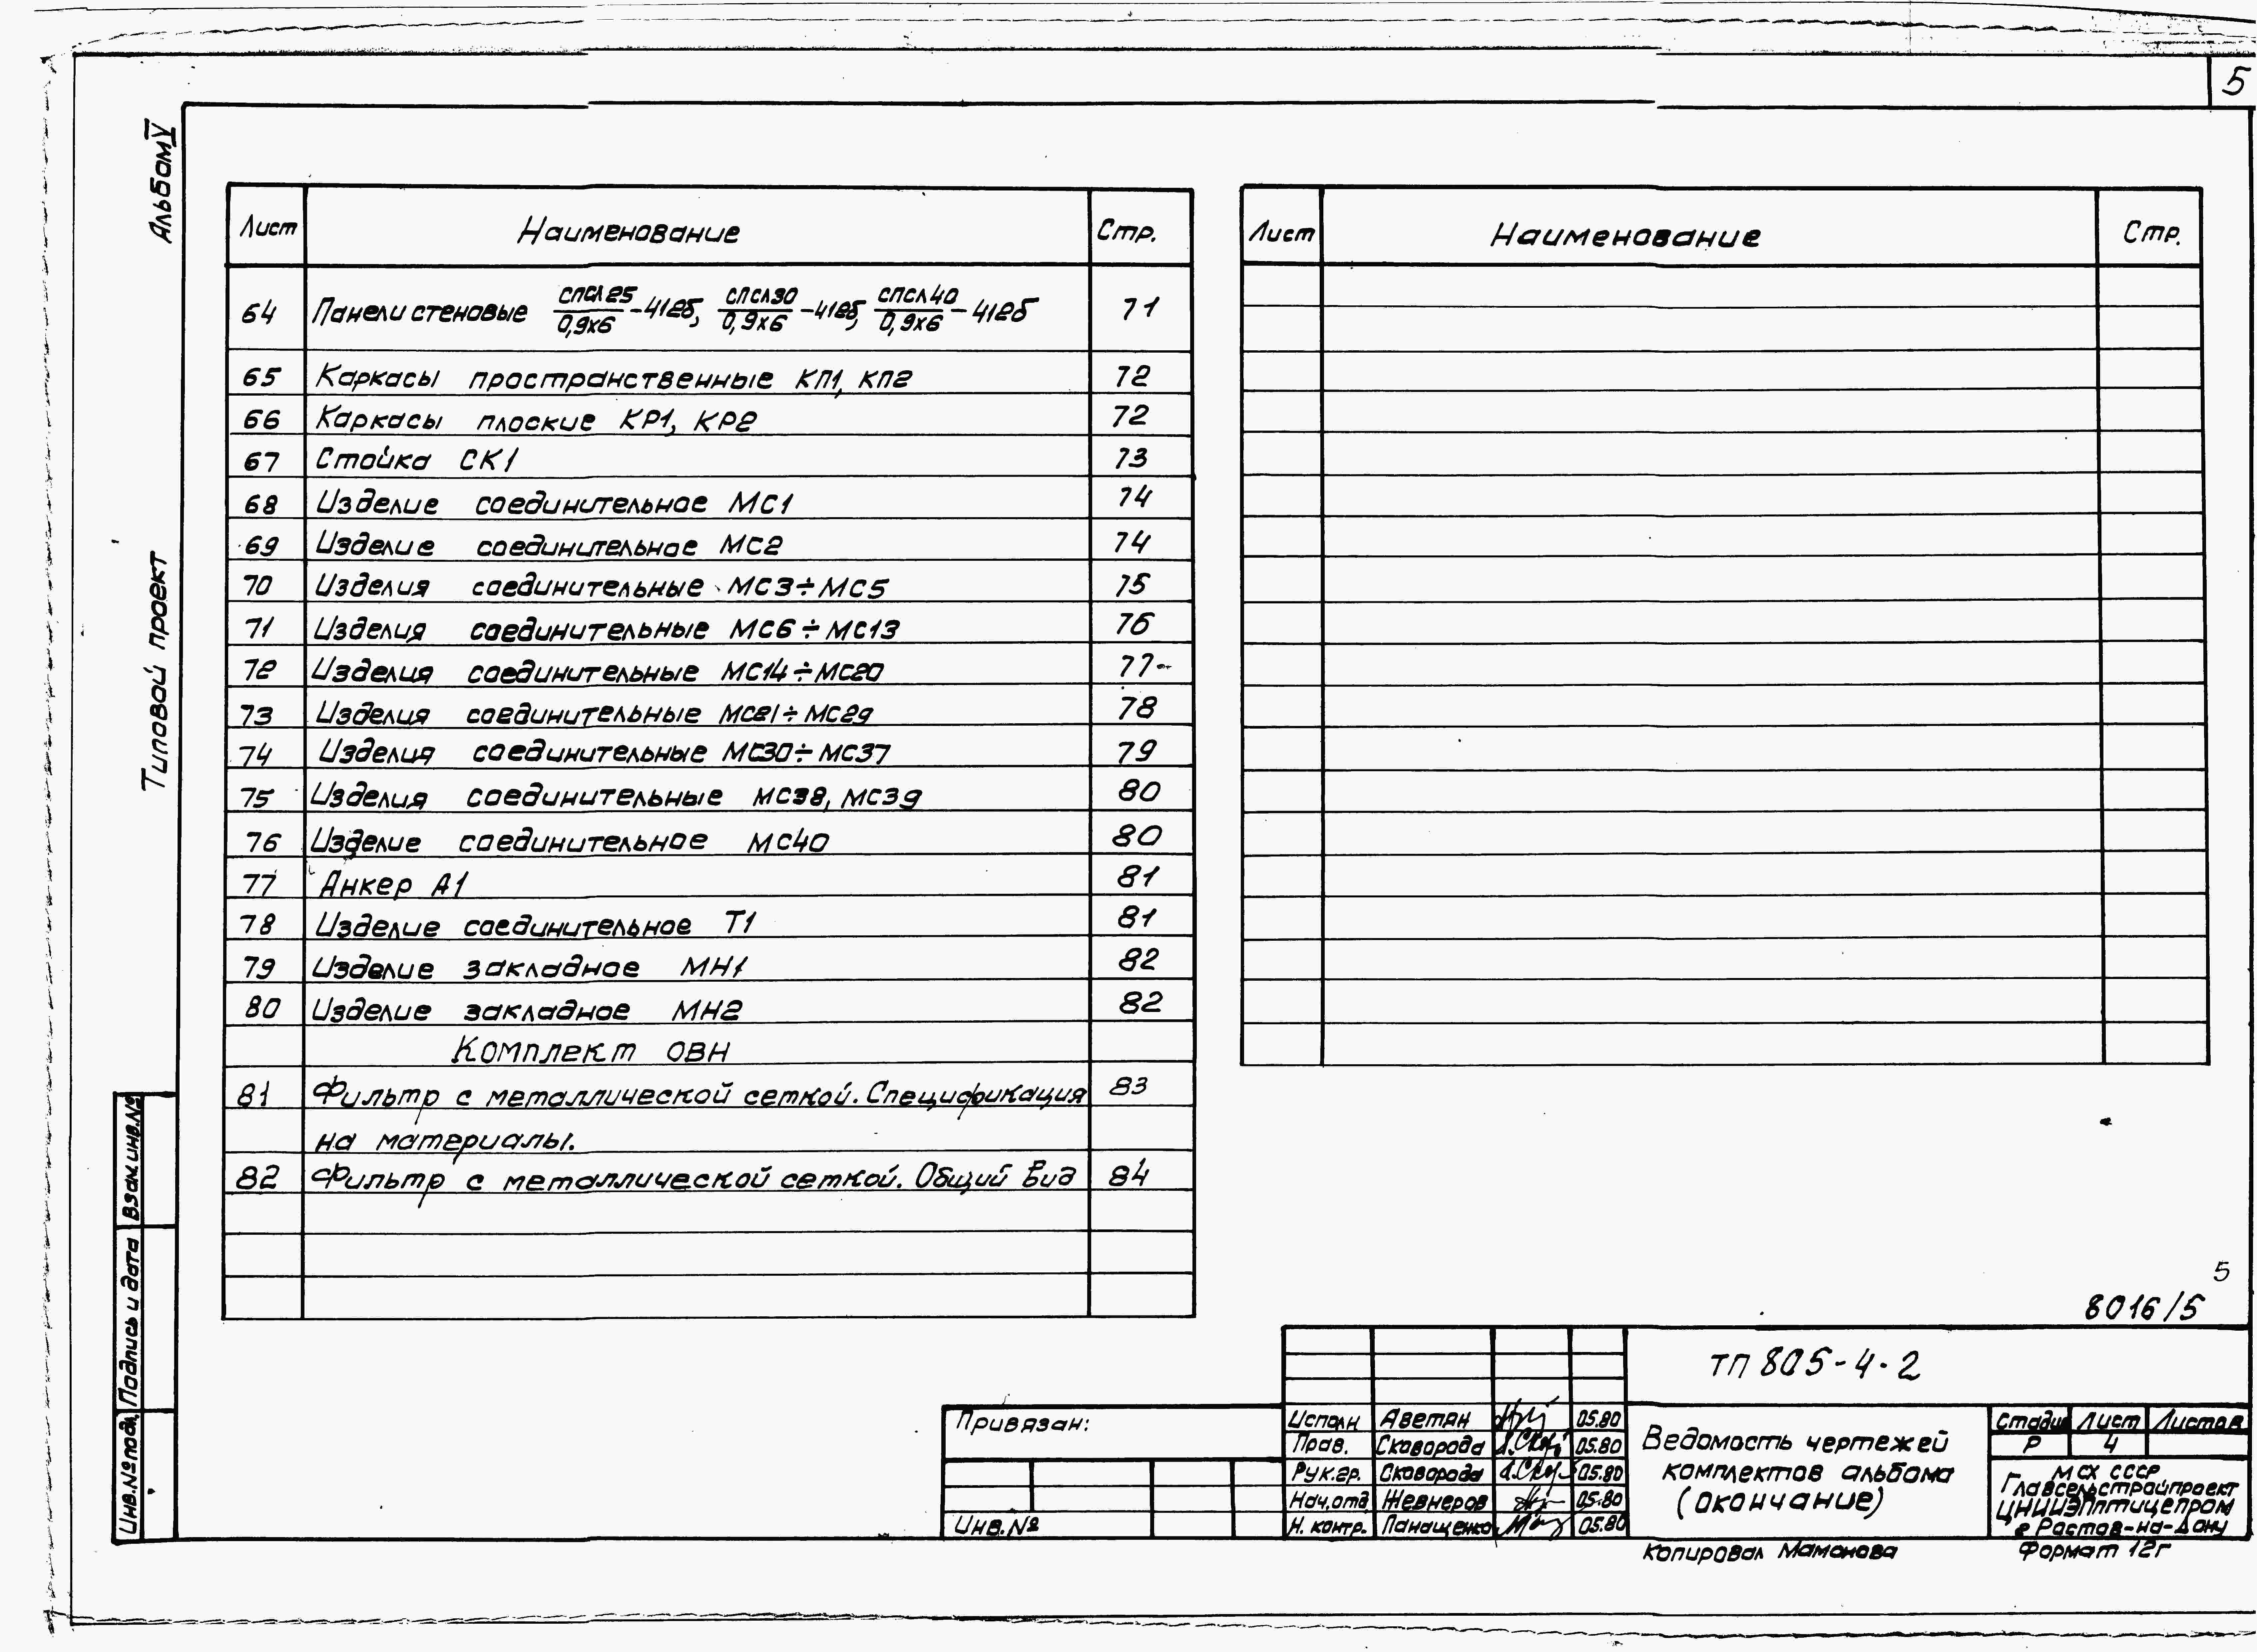 5
Альбом V
Типовой проект
Лист Наименование Стр.
64 Панели стеновые СПСЛ25/0,9х6-412б, СПСЛ30/0,9х6-412б, СПСЛ40/0,9х6-412б 71
65 Каркасы пространственные КП1, КП2 72
66 Каркасы плоские КР1, КР2 72
67 Стойка СК1 73
68 Изделие соединительное МС1 74
69 Изделие соединительное МС2 74
70 Изделия соединительные МС3÷МС5 75
71 Изделия соединительные МС6÷МС13 76
72 Изделия соединительные МС14÷МС20 77
73 Изделия соединительные МС21÷МС29 78
74 Изделия соединительные МС30÷МС37 79
75 Изделия соединительные МС38, МС39 80
76 Изделие соединительное МС40 80
77 Анкер А1 81
78 Изделие соединительное Т1 81
79 Изделие закладное МН1 82
80 Изделие закладное МН2 82
Комплект ОВН
81 Фильтр с металлической сеткой. Спецификация 83
на материалы.
82 Фильтр с металлической сеткой. Общий вид 84
Лист Наименование Стр.
5
8016/5
Взам.инв.№
Подпись и дата
Инв.№ подл.
Привязан:
Инв.№
Исполн Аветян 05.80
Пров. Сковорода 05.80
Рук.гр. Сковорода 05.80
Нач.отд Жевнеров 05.80
Н. контр. Панащенко 05.80
ТП 805-4-2
Ведомость чертежей
комплектов альбома
(окончание)
Стадия Лист Листов
Р 4
МСХ СССР
Главсельстройпроект
ЦНИИЭПптицепром
г Ростов-на-Дону
Копировал Мамонова
Формат 12г